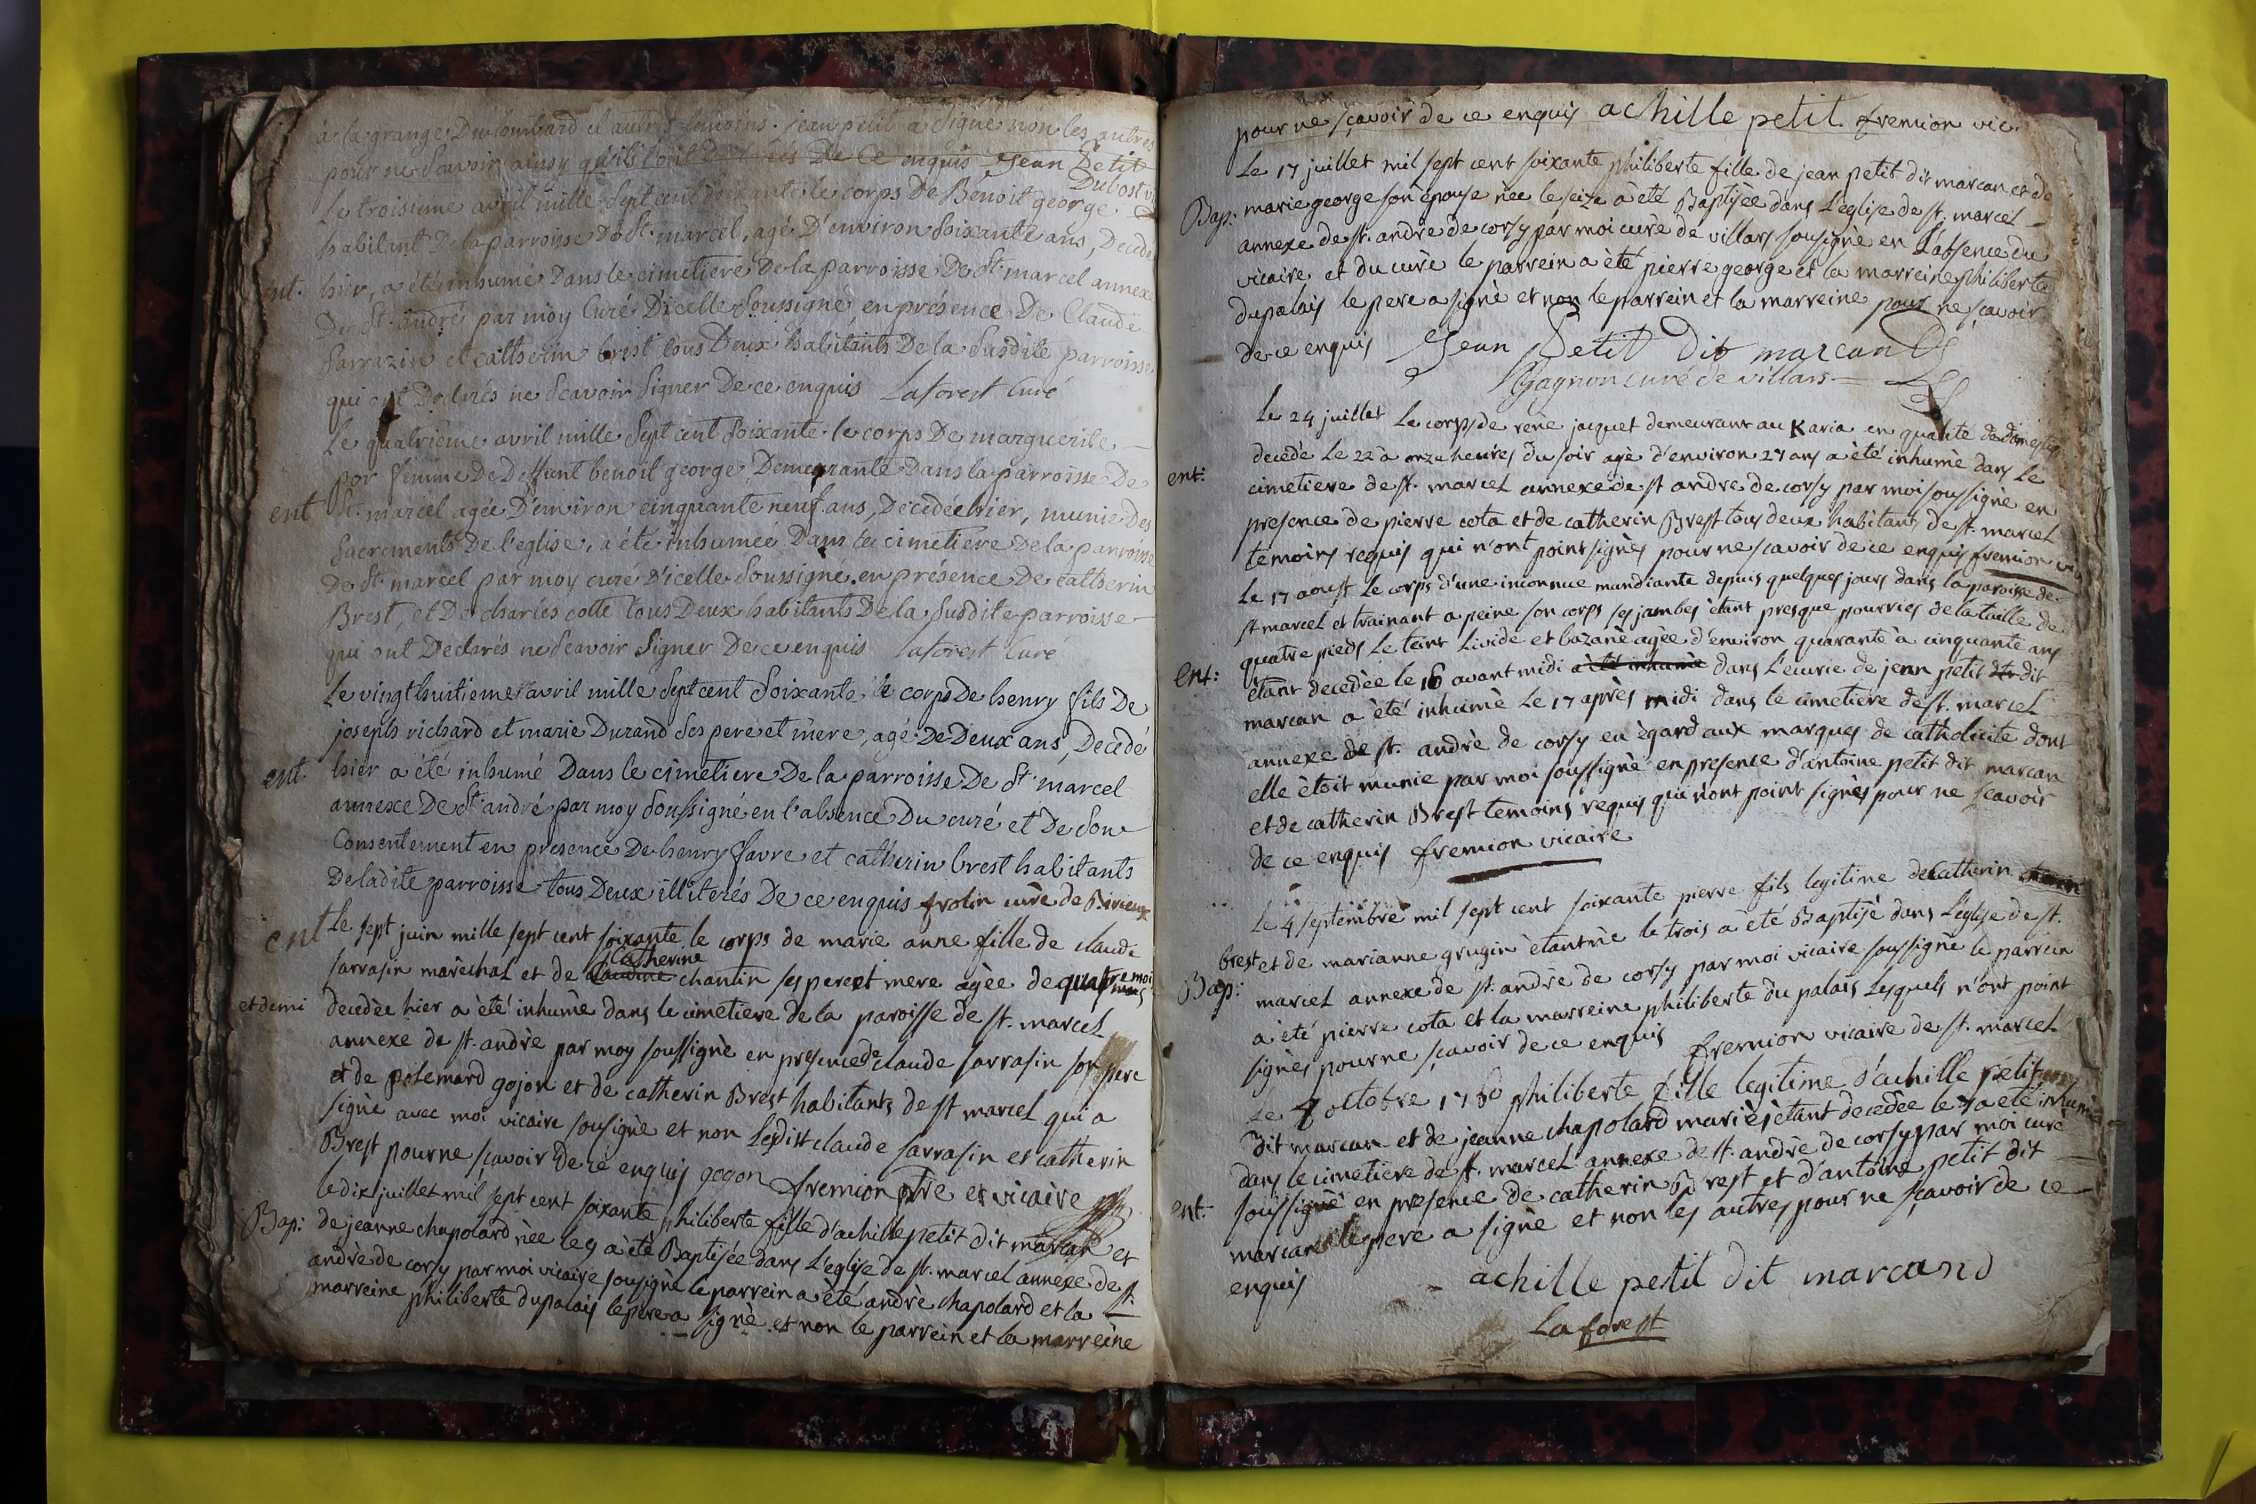 à la grange Du lombard et autres temoins. jean petit a signé non les autres
pour ne scavoir ainsy qu'ils l'ont De ce enquis Jean Petit
Dubost
Le troisieme avril mille sept cent soixante le corps De Benoit george
habitant De la parroisse De St. marcel, agé D'environ soixante ans, Decedé
ent. hier, a été inhumé Dans le cimetiere De la parroisse De St. marcel annexe
De St. andré par moy Curé D'icelle soussigné en présence De Claude
Sarrazin et catherin brest tous Deux habitants De la susdite parroisse
qui ont Declarés ne scavoir signer De ce enquis Laforest Curé
Le quatrieme avril mille sept cent soixante le corps De marguerite
por femme De Deffunt benoit george, Demeurante Dans la parroisse De
ent St. marcel agée D'environ cinquante neuf ans, Decedée hier, munie Des
sacrements De l'eglise, a été inhumée Dans le cimetiere De la parroisse
De St. marcel par moy curé D'icelle soussigné en présence De catherin
Brest, et De charles cotte tous Deux habitants De la susdite parroisse
qui ont Declarés ne scavoir signer De ce enquis Laforest Curé
Le vingt huitieme avril mille sept cent soixante, le corps De henry fils De
joseph richard et marie Durand ses pere et mère, agé De Deux ans, Decedé
ent. hier a été inhumé Dans le cimetiere De la parroisse De St. marcel
annexe De St. andré par moy soussigné en l'absence Du curé et De son
Consentement en presence De henry favre et catherin brest habitants
De ladite parroisse tous Deux illiterés De ce enquis frolin curè de Birieux
ent Le sept juin mille sept cent soixante le corps de marie anne fille de claude
catherine
sarrasin marèchal et de claudine chantin ses pere et mere agèe de quatre mois
et demi decedèe hier a èté inhumèe dans le cimetiere de la paroisse de st. marcel
annexe de st. andrè par moy soussignè en presence de claude sarrasin son pere
et de polemard gojon et de catherin Brest habitants de st marcel qui a
signè avec moi vicaire sousignè et non lesdits claude sarrasin et catherin
Brest pour ne scavoir de ce enquis gogon fremion ptre et vicaire
Le dix juillet mil sept cent soixante philiberte fille d'achille petit dit marcan et
Bap: de jeanne chapolard nèe le 9 a èté Baptisée dans l'eglise de st. marcel annexe de st.
andrè de corsy par moi vicaire sousignè le parrein a èté andrè chapolard et la
marreine philiberte dupalais le pere a signè et non le parrein et la marreine
pour ne sçavoir de ce enquis achille petit fremion vic.
Le 17 juillet mil sept cent soixante philiberte fille de jean petit dit marcan et de
Bap: marie george son èpouse nèe le seize à èté Baptisèe dans l'eglise de st. marcel
annexe de st. andrè de corsy par moi curè de villars sousignè en l'absence du
vicaire et du curè le parrein a èté pierre george et la marreine philiberte
dupalais le pere a signè et non le parrein et la marreine pour ne sçavoir
de ce enquis Jean Petit Dit marcan
Gagnon curé de villars
Le 24 juillet Le corps de rènè jacquet demeurant au Karia en qualite de domestiq
ent: decedè Le 22 à onze heures du soir agè d'environ 27 ans a èté inhumè dans Le
cimetiere de st. marcel annexe de st andre de corsy par moi soussignè en
presence de pierre cota et de catherin Brest tous deux habitans de st. marcel
temoins requis qui n'ont point signès pour ne scavoir de ce enquis fremion vic
Le 17 aoust Le corps d'une inconnue mandiante depuis quelques jours dans la paroisse de
st marcel et trainant a peine son corps ses jambes ètant presque pourries de la taille de
quatre pieds Le teint Livide et bazanè agèe d'environ quarante à cinquante ans
ent: ètant decedèe le 16 avant midi a èté inhumèe dans L'ecurie de jean petit dit dit
marcan a èté inhumè Le 17 après midi dans le cimetiere de st. marcel
annexe de st. andrè de corsy eu ègard aux marques de catholicite dont
elle ètoit munie par moi soussignè en presence d'antoine petit dit marcan
et de catherin Brest temoins requis qui n'ont point signès pour ne scavoir
de ce enquis fremion vicaire
Le 4 septembre mil sept cent soixante pierre fils legitime de catherin
brest et de marianne grugin ètant nè le trois a èté Baptisè dans l'eglise de st.
Bap: marcel annexe de st. andrè de corsy par moi vicaire soussignè le parrein
a èté pierre cota et la marreine philiberte du palais Lesquels n'ont point
signès pour ne sçavoir de ce enquis fremion vicaire de st. marcel
Le 7 octobre 1760 philiberte fille legitime d'achille petit
Dit marcan et de jeanne chapolard mariès ètant decedèe le 7 a èté inhumèe
dans le cimetiere de st. marcel annexe de st. andrè de corsy par moi curè
ent. soussignè en presence de catherin Brest et d'antoine petit dit
marcan le pere a signè et non les autres pour ne sçavoir de ce
enquis
achille petit dit marcand
Laforest